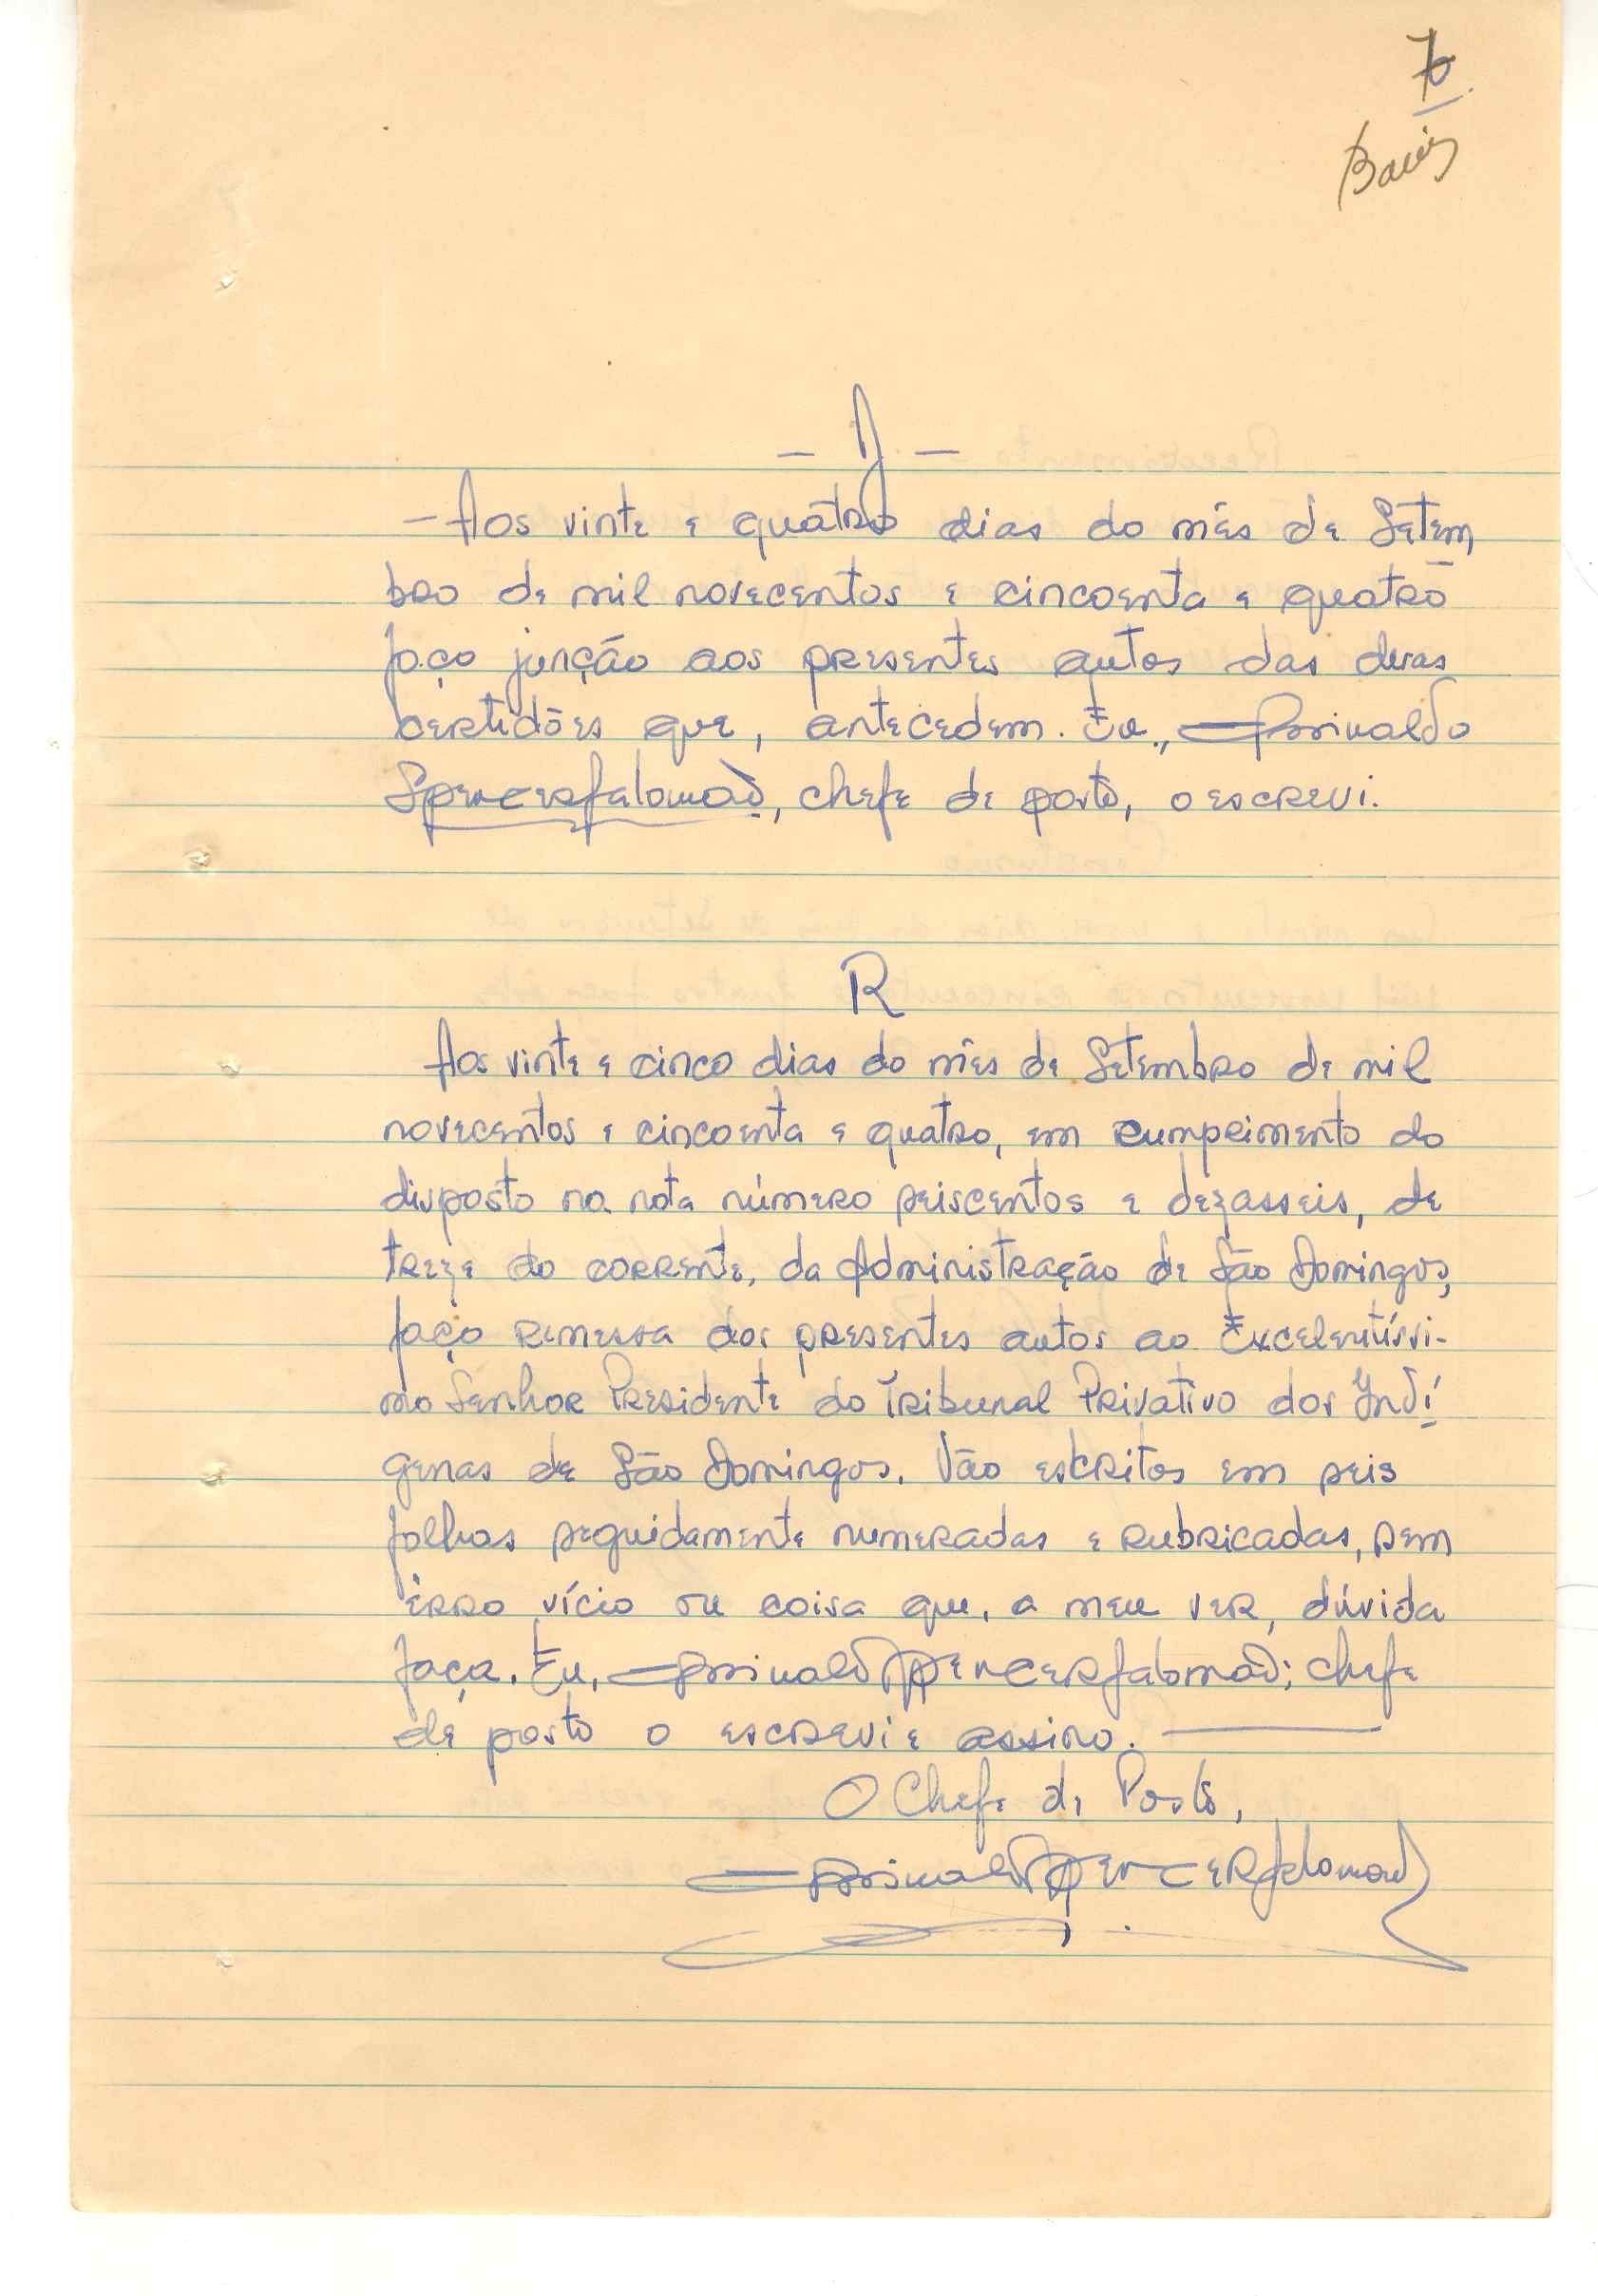 - J -
- Aos vinte e quatro dias do mês de Setem
bro de mil novecentos e cincoenta e quatro
faço junção aos presentes autos das duas
certidões que, antecedem. Eu,
Spencer Salomão, chefe de posto, o escrevi.
R
Aos vinte e cinco dias do mês de Setembro de mil
novecentos e cincoenta e quatro, em cumprimento do
disposto na nota número seiscentos e dezasseis, de
treze do corrente, da Administração de São Domingos,
faço remessa dos presentes autos ao Excelentíssi-
mo Senhor Presidente do Tribunal Privativo dos Indí
genas de São Domingos. Vão escritos em seis
folhas seguidamente numeradas e rubricadas, sem
êrro vício ou coisa que, a meu ver, dúvida
faça. Eu, Spencer Salomão; chefe
de posto o escrevi e assino.
O Chefe de Posto,
Spencer Salomão